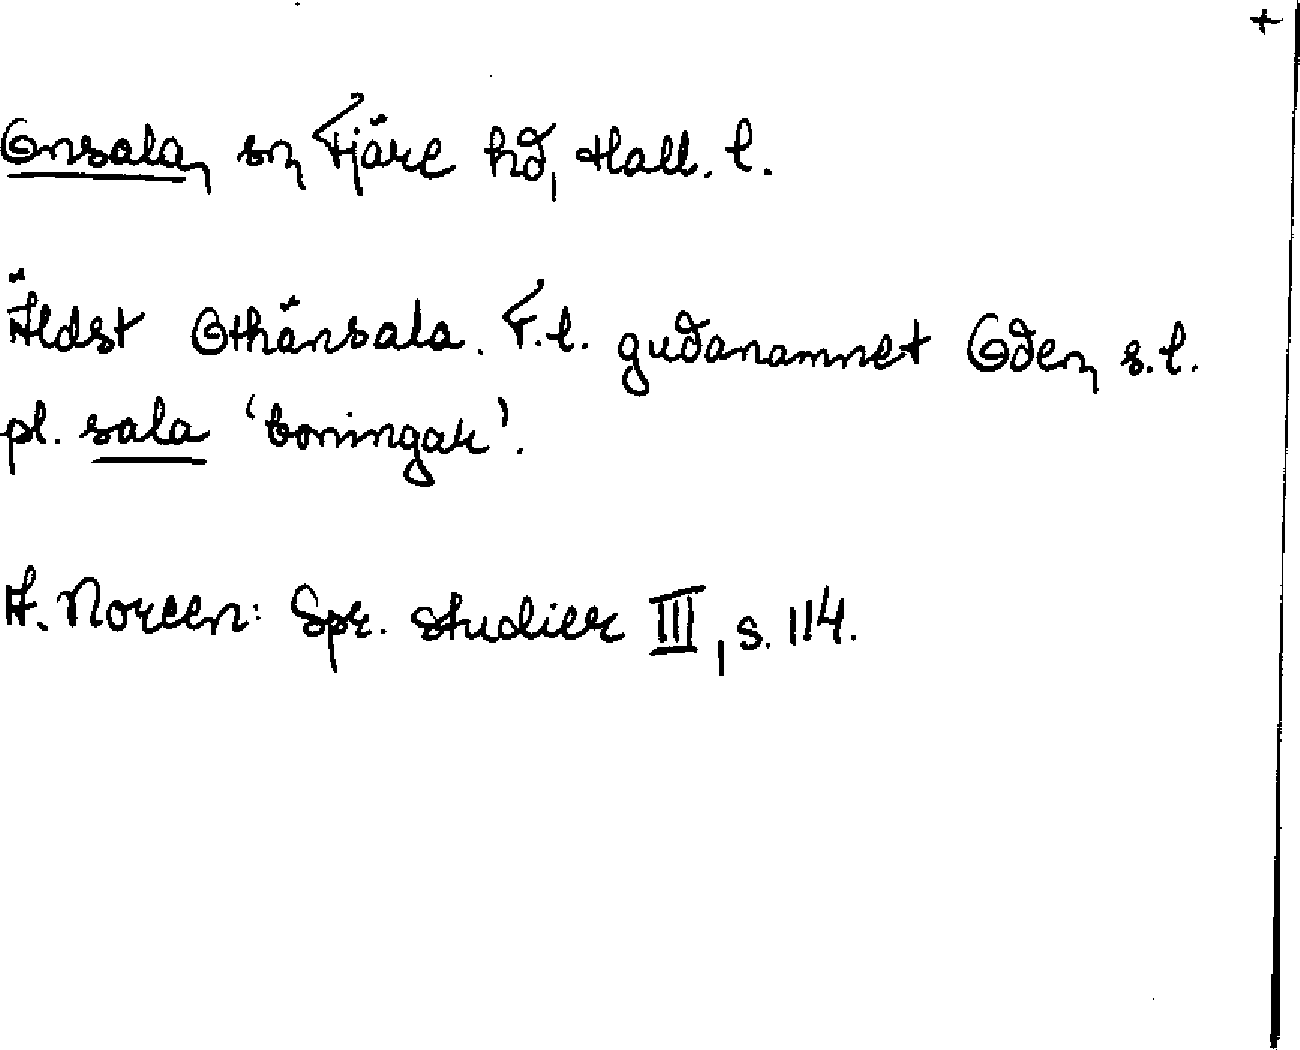 +
Onsala, sn, Fjäre hd, Hall. l.
Äldst Othänsala. F.l. gudanamnet Oden, s.l.
pl. sala 'boningar'.
A. Noreen: Spr. studier III, s. 114.